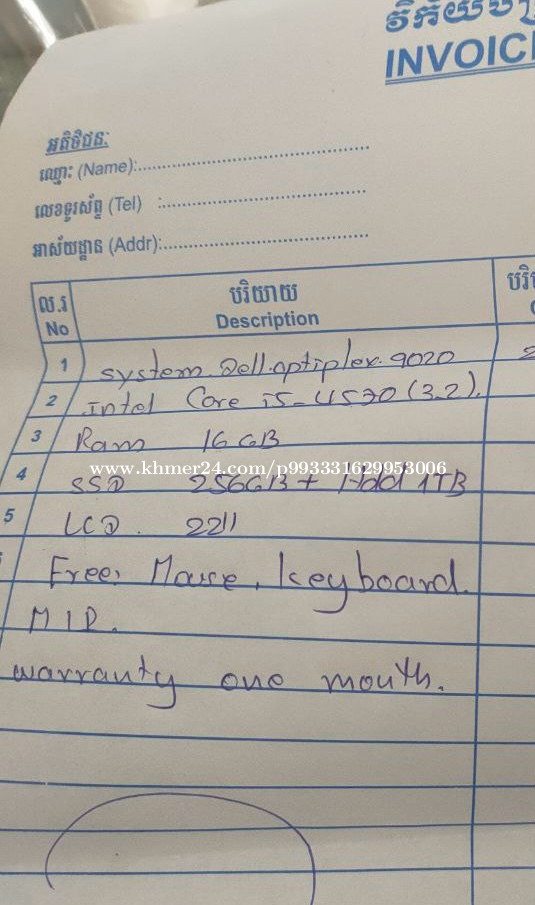 វិក័យប័
INVOIC
អតិថិជនៈ
ឈ្មោះ (Name):
លេខទូរស័ព្ទ (Tel) :
អាស័យដ្ឋាន (Addr):
ល.រ បរិយាយ បរិ
No Description
1 system Dell optiplex 9020
2 intel Core i5-4570 (3.2).
3 Ram 16 GB
www.khmer24.com/p993331629953006
4 SSD 256GB + Hdd 1TB
5 LCD. 2211
Free, Mouse, keyboard.
warranty one month.